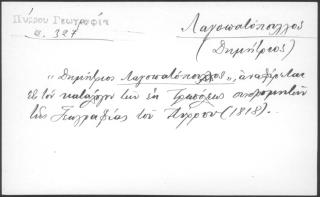 Πύρρου Γεωγραφία
σ. 327
Λαγοπατόπουλλος
(Δημήτριος)
"Δημήτριος Λαγοπατόπουλλος", αναφέρεται
εις τον κατάλογον των εκ Τριπόλεως συνδρομητών
της Γεωγραφίας του Πύρρου (1818).